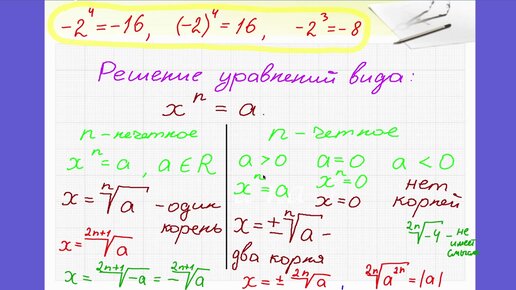 -2⁴ = -16, (-2)⁴ = 16, -2³ = -8
Решение уравнений вида:
xⁿ = a.
n - нечетное
xⁿ = a, a ∈ R
x = ⁿ√a - один
корень
x = ²ⁿ⁺¹√a
x = ²ⁿ⁺¹√-a = -²ⁿ⁺¹√a
n - четное
a > 0 a = 0 a < 0
xⁿ = a xⁿ = 0 нет
x = 0 корней
x = ± ⁿ√a -
два корня
²ⁿ√-4 - не
имеет
смысла
x = ± ²ⁿ√a, ²ⁿ√a²ⁿ = |a|